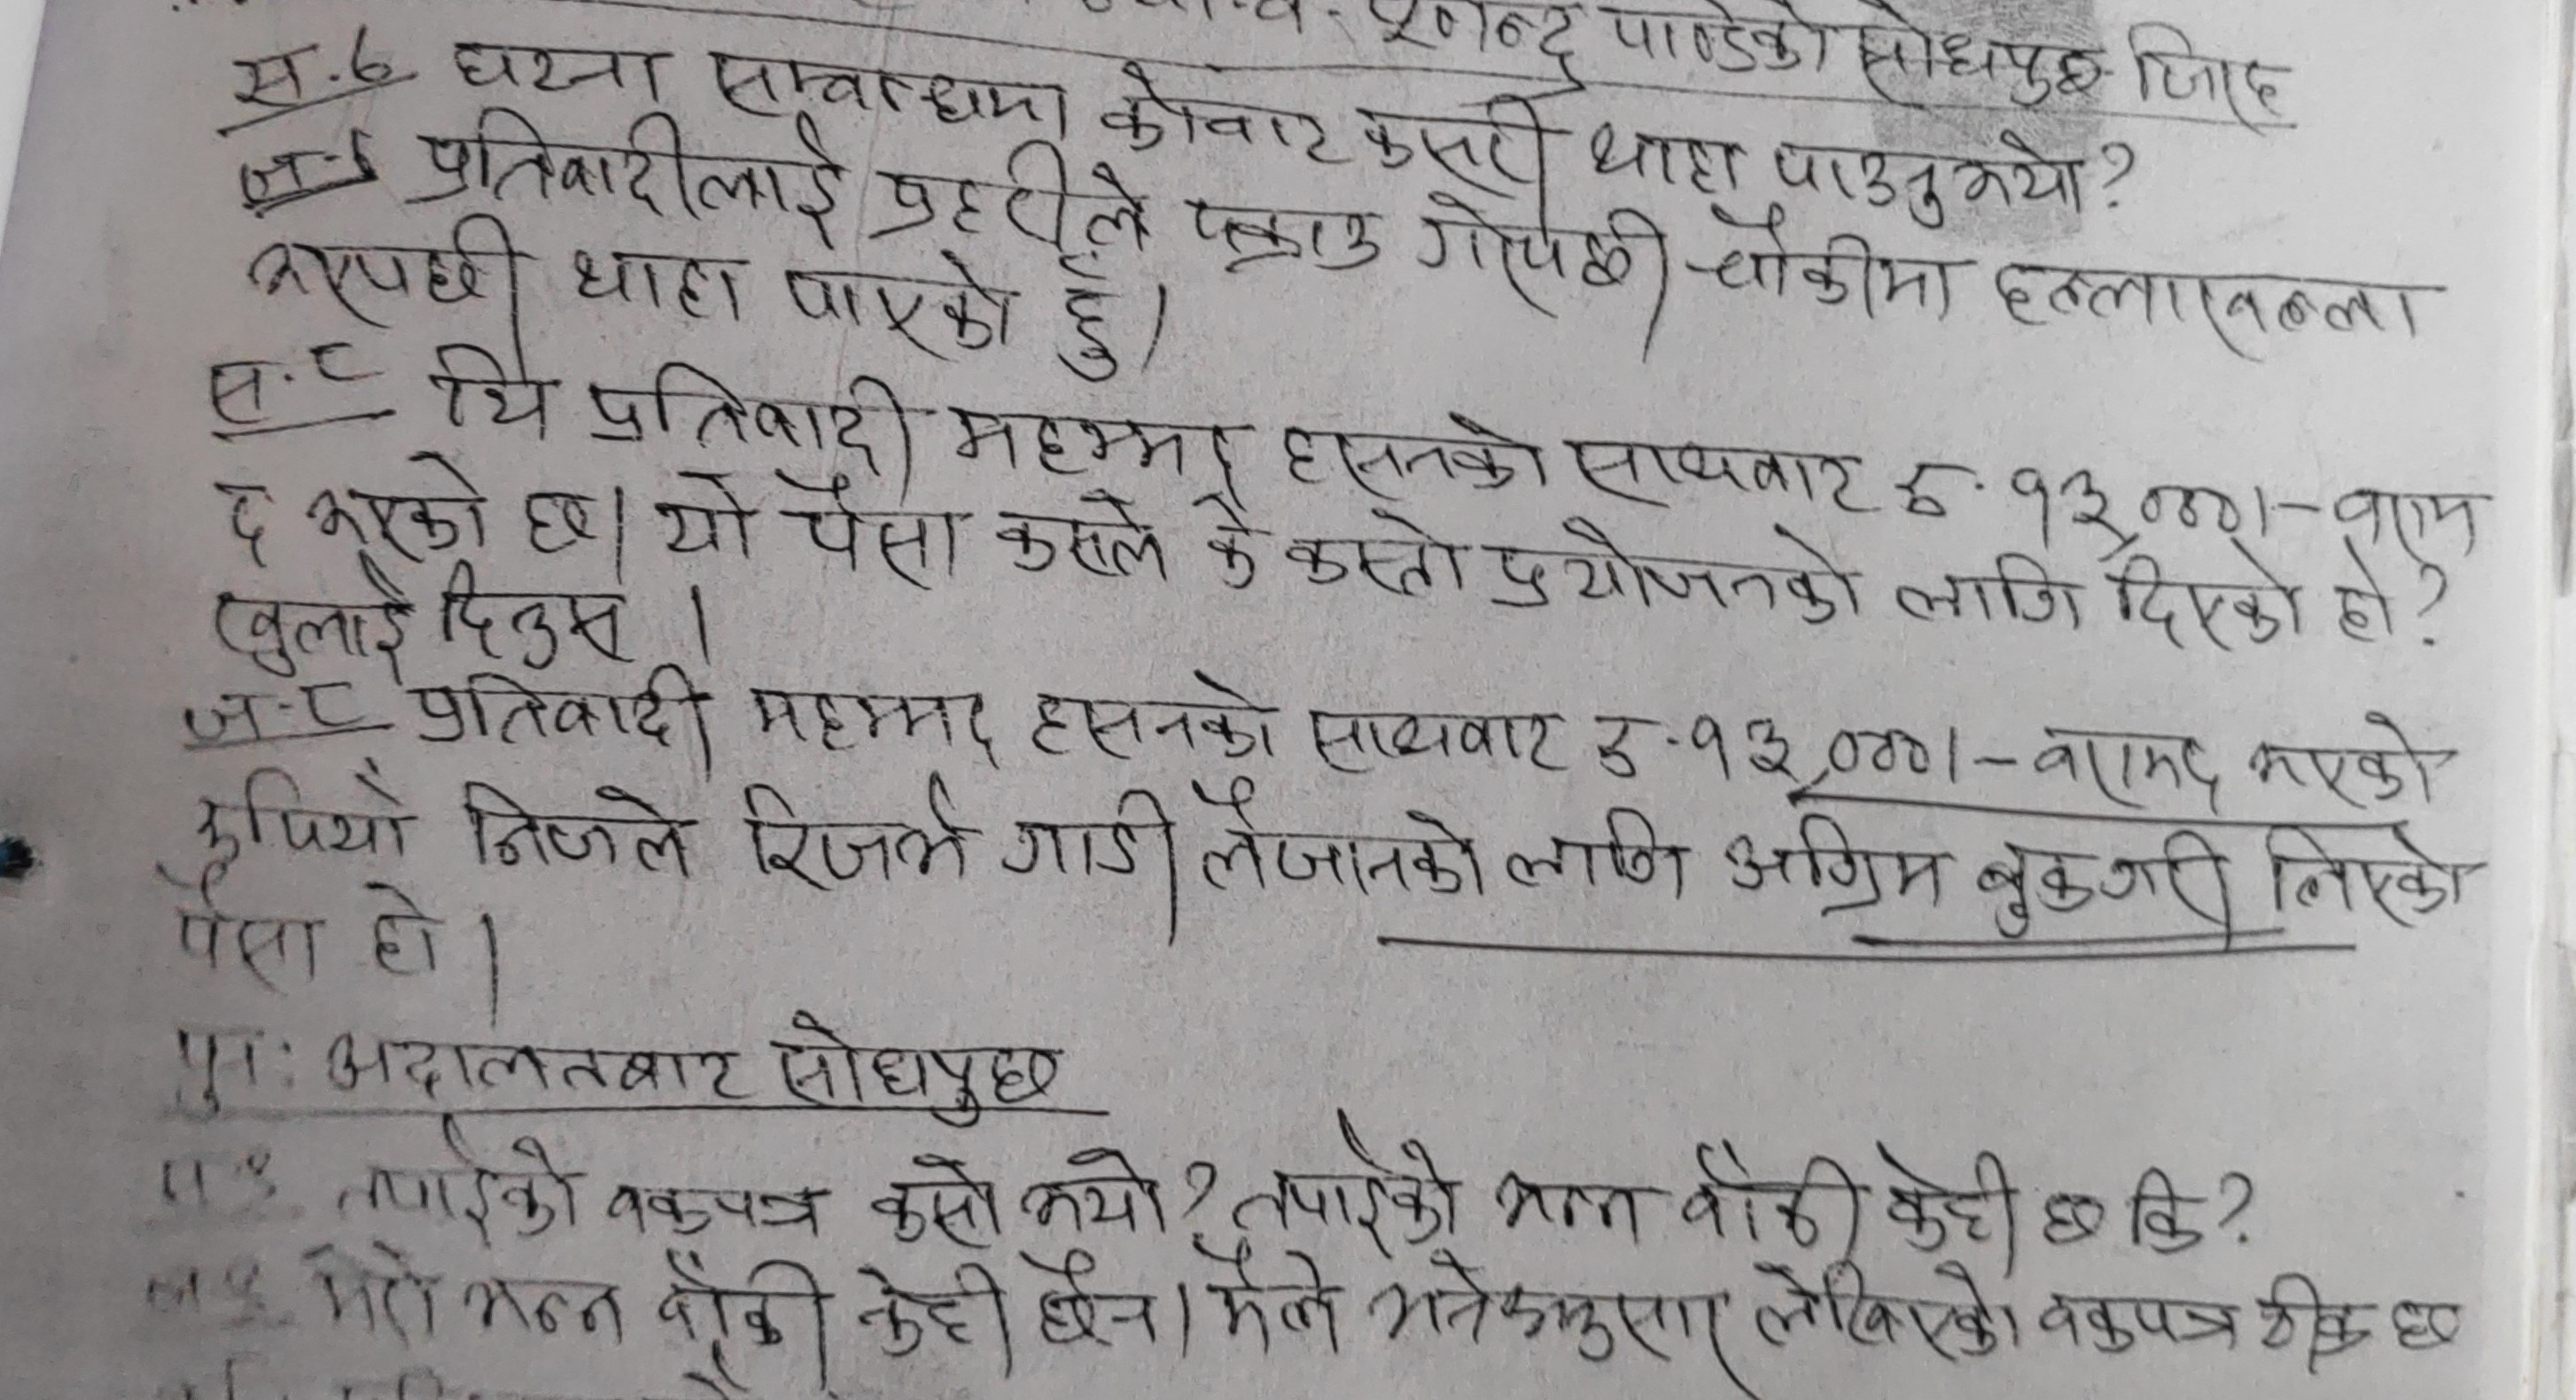 पाण्डेको सोधपुछ जिरह
स.७ घटना सम्बन्धमा कोबाट कसरी थाहा पाउनुभयो?
ज.७ प्रतिवादीलाई प्रहरीले पक्राउ गरेपछी चौकीमा हल्लाखल्ला
भएपछी थाहा पाएको हुँ।
स.८ यि प्रतिवादी महम्मद हसनको साथबाट रु.१३,०००।- बराम
द भएको छ। यो पैसा कसले के कस्तो प्रयोजनको लागि दिएको हो?
खुलाई दिनुस ।
ज.८ प्रतिवादी महम्मद हसनको साथबाट रु.१३,०००।- बरामद भएको
रुपियाँ निजले रिजर्भ गाडी लैजानको लागि अग्रिम बुक गरी लिएको
पैसा हो।
पुन: अदालतबाट सोधपुछ
तपाईको वकपत्र कसो भयो? तपाईको भन्न बाँकी केही छ कि?
मेरो भन्न बाँकी केही छैन। मैले भनेअनुसार लेखिएको वकपत्र ठीक छ